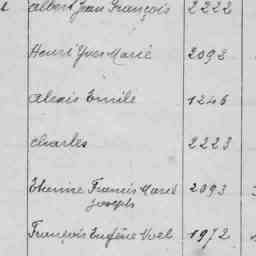 Albert Jean François 2222
Henri Yves Marie 2092
Alexis Emile 1246
Charles 2223
Etienne Francis Marie 2093
Joseph
François Eugène Noël 1972